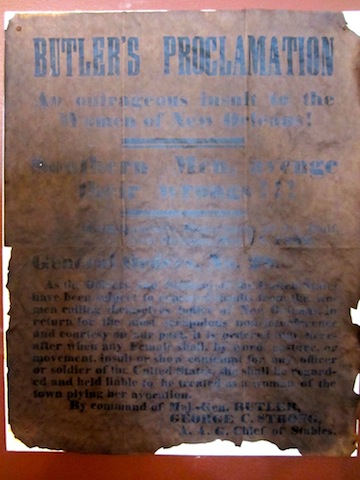 BUTLER'S PROCLAMATION
An outrageous insult to the
Women of New Orleans!
Southern Men, avenge
their wrongs!!!
General Orders, No. 28.
As the Officers and Soldiers of the United States
have been subject to repeated insults from the wo-
men calling themselves ladies of New Orleans, in
return for the most scrupulous non-interference
and courtesy on our part, it is ordered that here-
after when any Female shall, by word, gesture, or
movement, insult or show contempt for any officer
or soldier of the United States, she shall be regard-
ed and held liable to be treated as a woman of the
town plying her avocation.
By command of Maj.-Gen. BUTLER,
GEORGE C. STRONG,
A. A. G. Chief of Stables.